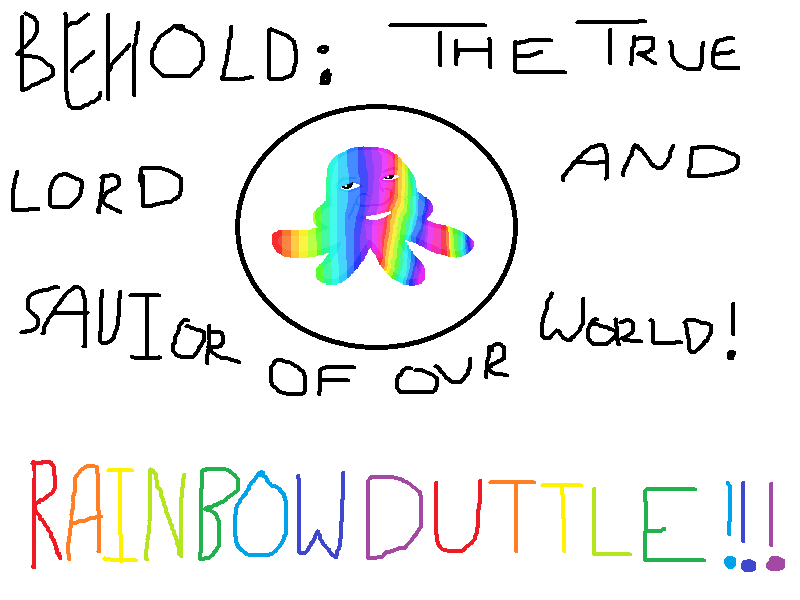 BEHOLD: THE TRUE
LORD AND
SAVIOR OF OUR WORLD!
RAINBOWDUTTLE!!!